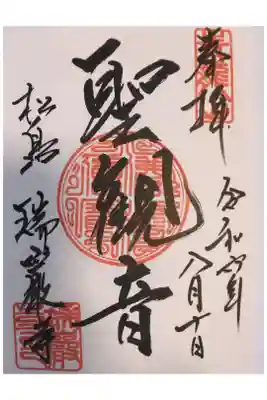 奉拝
令和年八月十日
聖觀音
松島 瑞巌寺